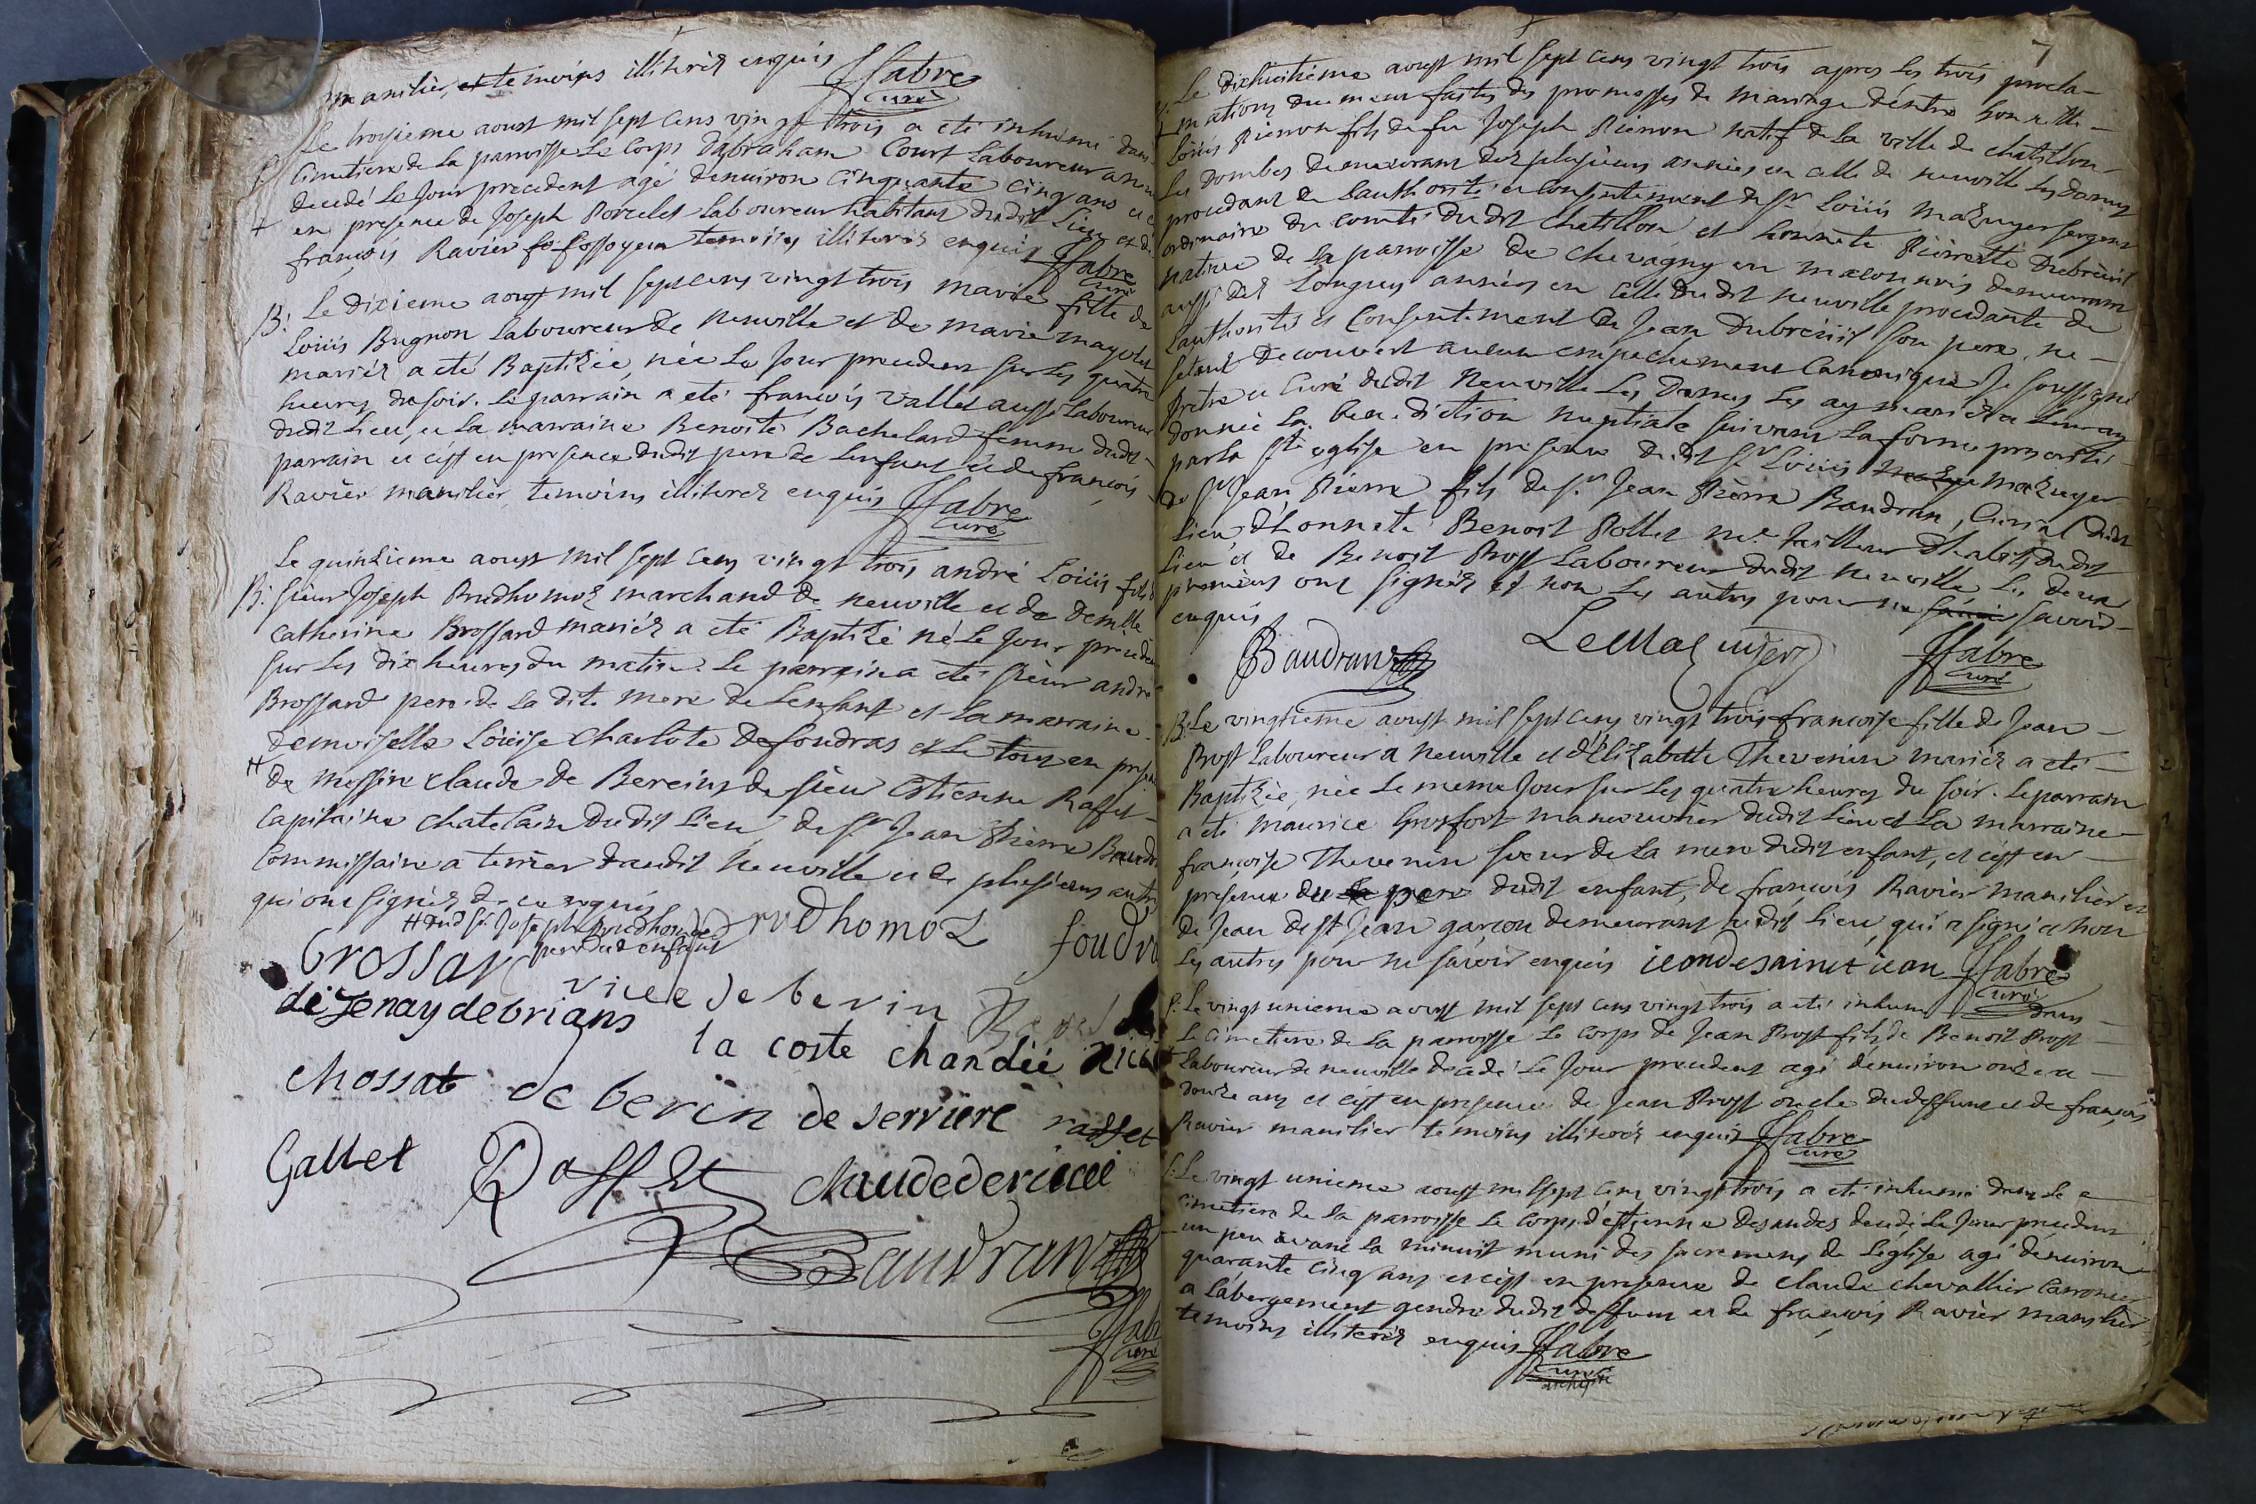 manilier, et temoins illiterés enquis ffabre
curé
Le troisieme aoust mil sept cens vingt trois a eté inhumé dans
Cimetiere de la parroisse Le Corps d'abraham Court Laboureur
decedé Le Jour precedent agé d'environ Cinquante cinq ans et c
en presence de Joseph Porcelet Laboureur habitant dudit Lieu et de
françois Ravier fossoyeur temoins illiterés enquis ffabre
curé
B. Le dixieme aoust mil sept cens vingt trois marie fille de
Loüis Bugnon Laboureur de neuville et de marie mayolet
mariés a eté Baptisée, née Le Jour precedent sur Les quatre
heures du soir. Le parrain a eté françois vallet aussi Laboureur
dudit Lieu, et La marraine Benoite Bachelard femme dudit
parrain et c'est en presence dudit pere de L'enfant et de françois
Ravier manilier, temoins illiterés enquis ffabre
curé
Le quinzieme aoust mil sept cens vingt trois andré Loüis fils
B. sieur Joseph Prudhomoz marchand de neuville et de Demlle
Catherine Brossard mariés a eté Baptizé né Le Jour préceden
sur Les dix heures du matin. Le parrain a eté sieur andré
Brossard pere de La dite mere de L'enfant et La marraine
Demoiselle Loüise Charlote Defoudras et Le tout en prese
de messire claude de Bereins de sieur Estienne Raffet
Capitaine chatelain dudit Lieu de sr Jean Pierre Baudr
Commissaire a terrier dudit Neuville et de plusieurs autr
qui ont signés de ce requis
# dud sr. Joseph prudhomoz
pere dud enfant
Brossard Prudhomoz foudra
de Jenay debrians de bevin
la coste chandée
chossat de berin de serriere raffet
Gallet Raffet
Baudran
ffab
curé
7
Le dixhuitieme aoust mil sept cens vingt trois apres Les trois procla-
mations duemeur faites des promesses de mariage d'entre honnette
Loüis Pienon fils de feu Joseph Pienon natif de la ville de chatillon
Les Dombes demeurant dez plusieurs années en celle de neuville Les dames
procedant de L'authorité et consentement de sr Loüis mazuyer sergent
ordinaire du comté dudit Chatillon et honnete Pierrette Dubreüil
native de la parroisse de chevagny en maconnois demeurant
aussi dez Longues années en celle dudit neuville procedante de
L'authorité et Consentement de Jean Dubreüil son pere, ne
setant decouvert aucun empechement Canonique Je soussigné
Prêtre et Curé dudit Neuville Les Dames Les ay mariés et Leur ay
donnée La benediction nuptiale suivant La forme prescritte
par la ste eglise en presence dudit sr Loüis mazuyer
de sr Jean Pierre fils de sr Jean Pierre Baudran, Curial dudit
Lieu, d'honnete Benoit Pollet me tailleur d'habits dudit
Lieu et de Benoit Prost Laboureur dudit neuville Les deux
premiers ont signés et non Les autres pour ne savoir
enquis
Baudran LeMazuyer ffabre
curé
B. Le vingtieme aoust mil sept cens vingt trois françoise fille de Jean
Prost Laboureur a neuville et d'Elizabeth Thevenin mariés a eté
Baptizée, née Le meme Jour sur Les quatre heures du soir. Le parrain
a eté maurice Grosfort manouvrier dudit Lieu et La marraine
françoise Thevenin soeur de la mere dudit enfant, et c'est en
presence du pere dudit enfant, de françois Ravier manilier et
de Jean de st Jean garcon demeurant audit Lieu, qui a signé et non
Les autres pour ne savoir enquis ieandesainct iean ffabre
curé
S. Le vingt unieme aoust mil sept cens vingt trois a eté inhumé dans
Le Cimetiere de La parroisse Le corps de Jean Prost fils de Benoit Prost
Laboureur de neuville decedé Le Jour precedent agé d'environ onze a
douze ans et c'est en presence de Jean Prost oncle du deffunt et de françois
Ravier manilier temoins illiterés enquis ffabre
curé
S. Le vingt unieme aoust mil sept cens vingt trois a eté inhumé dans Le
Cimetiere de La parroisse Le corps d'estienne Desandes decedé Le Jour precedent
un peu avant La minuit muni des sacremens de L'eglise agé d'environ
quarante cinq ans et c'est en presence de claude chevallier
a L'abergement gendre dudit deffunt et de françois Ravier manilier
temoins illiterés enquis ffabre
curé